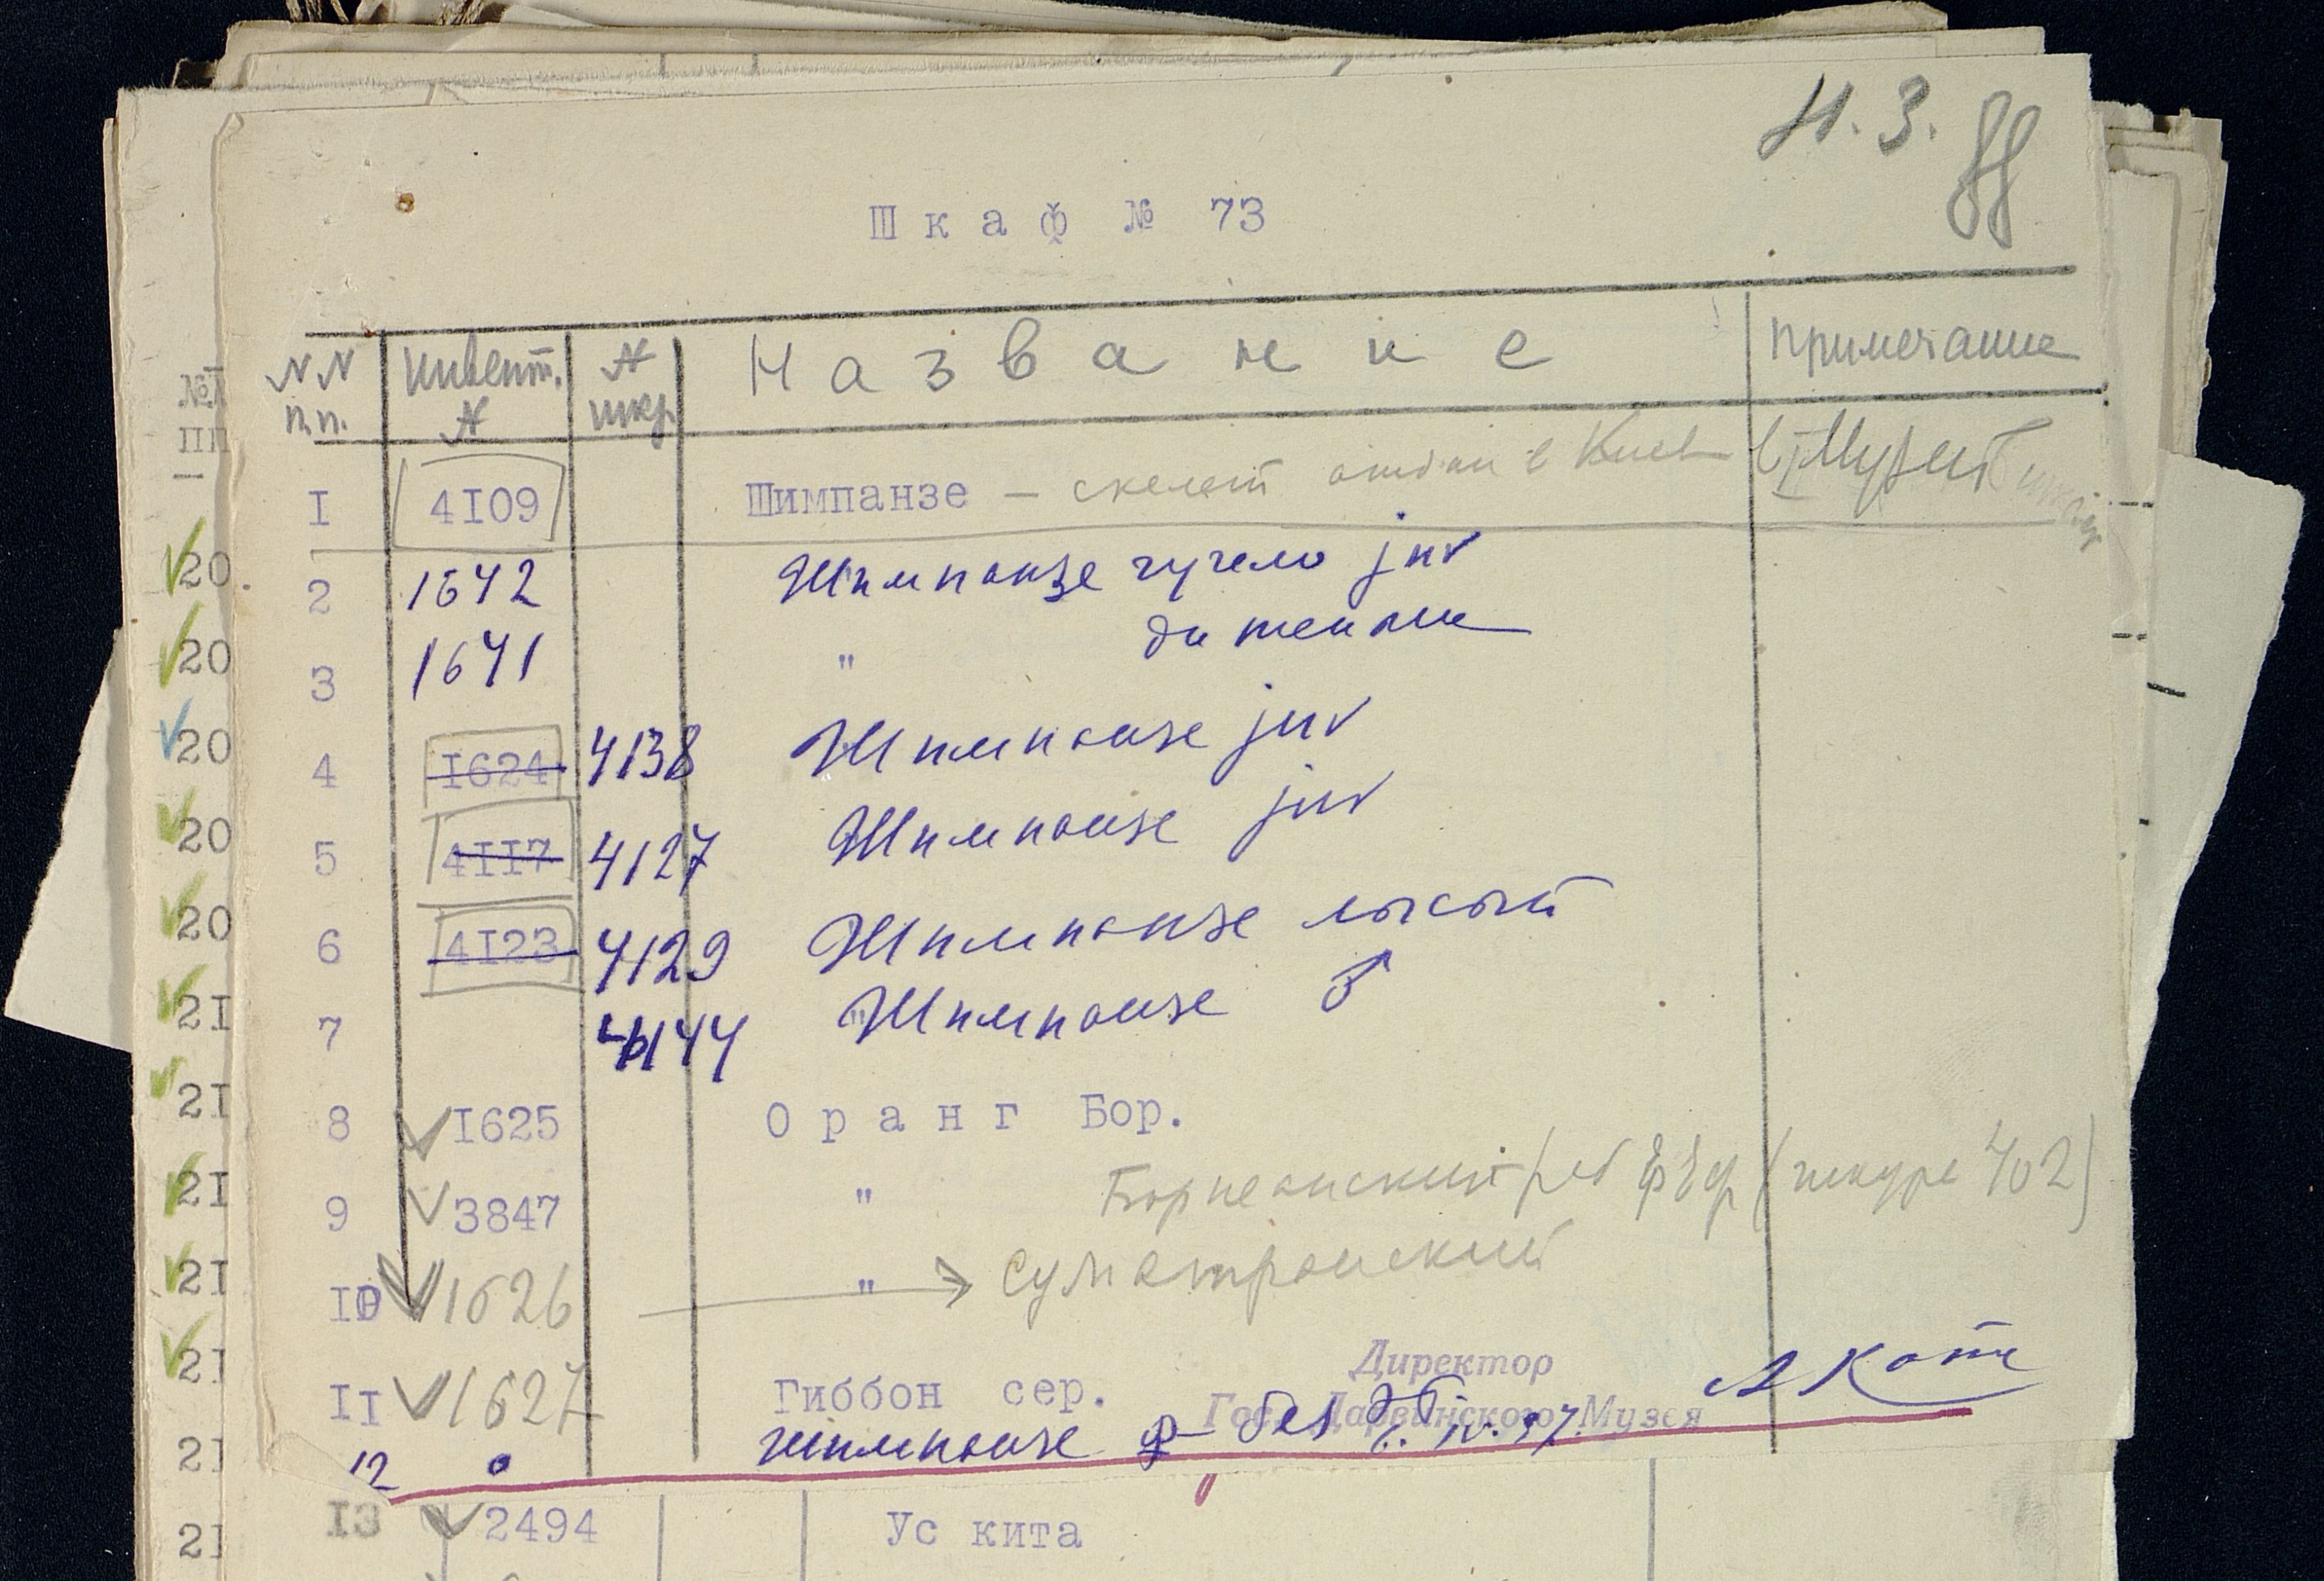 Н. З. 88
Шкаф № 73
N N п.п. Инвент. N N шкр. Название Примечание
I 4I09 Шимпанзе – скелет отдан в Киев в Музей
2 1642 Шимпанзе чучело juv
3 1641 " дитеныш
4 I624 4138 Шимпанзе juv
5 4II7 4127 Шимпанзе juv
6 4I23 4129 Шимпанзе лысый
7 4144 Шимпанзе ♂
8 I625 Оранг Бор.
9 3847 " Борнеанский (шкура 402)
I0 1626 " → Суматранский
Директор
II 1627 Гиббон сер.
Гос. Дарвинского Музея
А Котс
12 Шимпанзе без
I3 2494 Ус кита
№№
пп
20
20
20
20
20
2I
2I
2I
2I
2I
2I
2I